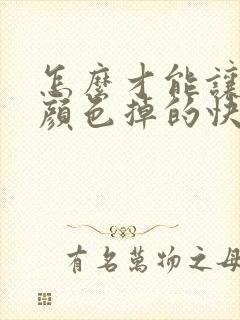 怎麼才能讓
顏色掉的快
有名萬物之母